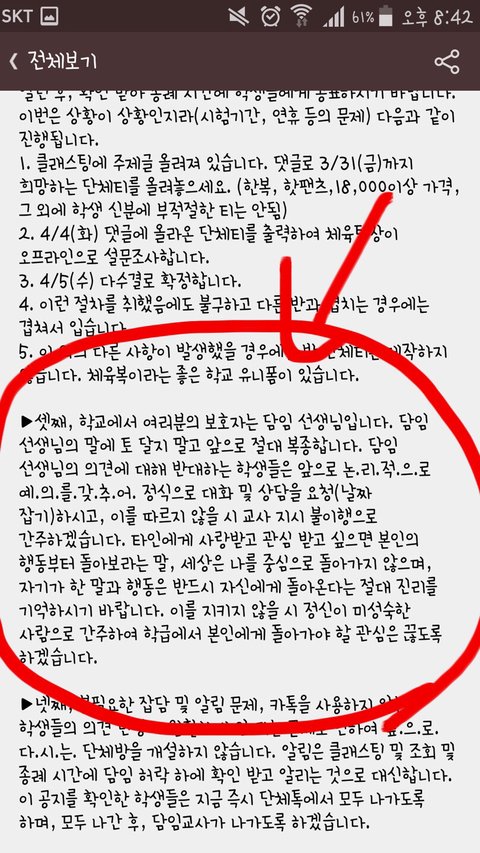 SKT 61% 오후 8:42
전체보기
이번은 상황이 상황인지라(시험기간, 연휴 등의 문제) 다음과 같이
진행됩니다.
1. 클래스팅에 주제글 올려져 있습니다. 댓글로 3/31(금)까지
희망하는 단체티를 올려놓으세요. (한복, 핫팬츠,18,000이상 가격,
그 외에 학생 신분에 부적절한 티는 안됨)
2. 4/4(화) 댓글에 올라온 단체티를 출력하여
오프라인으로 설문조사합니다.
3. 4/5(수) 다수결로 확정합니다.
4. 이런 절차를 취했음에도 불구하고 다른 반과 겹치는 경우에는
겹쳐서 입습니다.
5. 다른 사항이 발생했을 경우에 단체티 제작하지
않습니다. 체육복이라는 좋은 학교 유니폼이 있습니다.
▶셋째, 학교에서 여러분의 보호자는 담임 선생님입니다. 담임
선생님의 말에 토 달지 말고 앞으로 절대 복종합니다. 담임
선생님의 의견에 대해 반대하는 학생들은 앞으로 논.리.적.으.로
예.의.를.갖.추.어. 정식으로 대화 및 상담을 요청(날짜
잡기)하시고, 이를 따르지 않을 시 교사 지시 불이행으로
간주하겠습니다. 타인에게 사랑받고 관심 받고 싶으면 본인의
행동부터 돌아보라는 말, 세상은 나를 중심으로 돌아가지 않으며,
자기가 한 말과 행동은 반드시 자신에게 돌아온다는 절대 진리를
기억하시기 바랍니다. 이를 지키지 않을 시 정신이 미성숙한
사람으로 간주하여 학급에서 본인에게 돌아가야 할 관심은 끊도록
하겠습니다.
▶넷째, 불필요한 잡담 및 알림 문제, 카톡을 사용하지
학생들의 의견 인하여 앞.으.로.
다.시.는. 단체방을 개설하지 않습니다. 알림은 클래스팅 및 조회 및
종례 시간에 담임 허락 하에 확인 받고 알리는 것으로 대신합니다.
이 공지를 확인한 학생들은 지금 즉시 단체톡에서 모두 나가도록
하며, 모두 나간 후, 담임교사가 나가도록 하겠습니다.